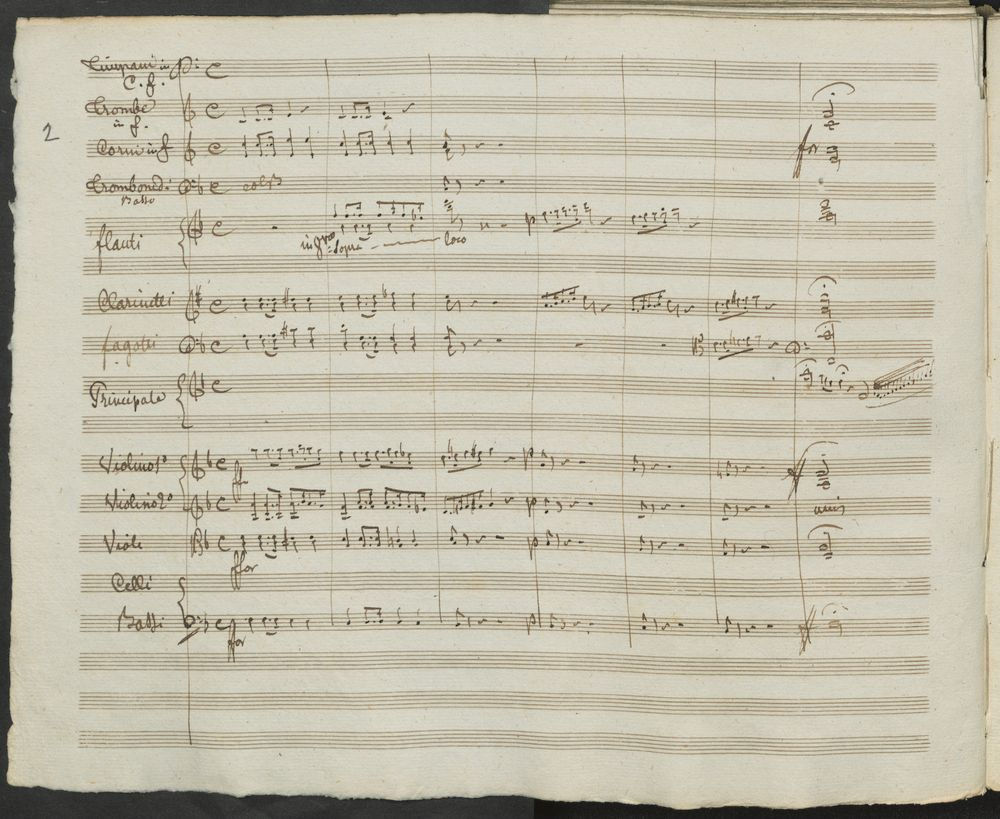 Timpani in
C. f.
Trombe
in f.
2
Corni in f
Trombone di
Basso
col B
flauti
in 8va
sopra
loco
p
Clarinetti
fagotti
Principale
Violino 1o
ff
p
Violino 2o
p
Viole
ffor
p
Celli
Bassi
ffor
p